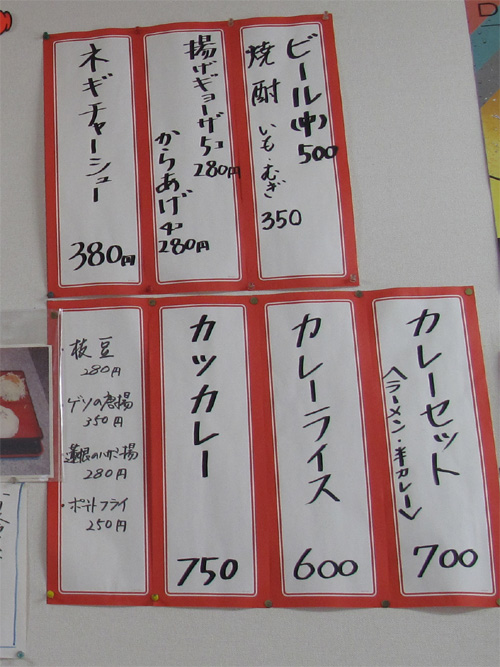 ビール(中)
500
焼酎 いも・むぎ
350
揚げギョーザ5コ
280円
からあげ4コ
280円
ネギチャーシュー
380円
カレーセット
〈ラーメン・半カレー〉
700
カレーライス
600
カツカレー
750
・枝豆
280円
・ゲソの唐揚
350円
・蓮根のハサミ揚
280円
・ポテトフライ
250円
D